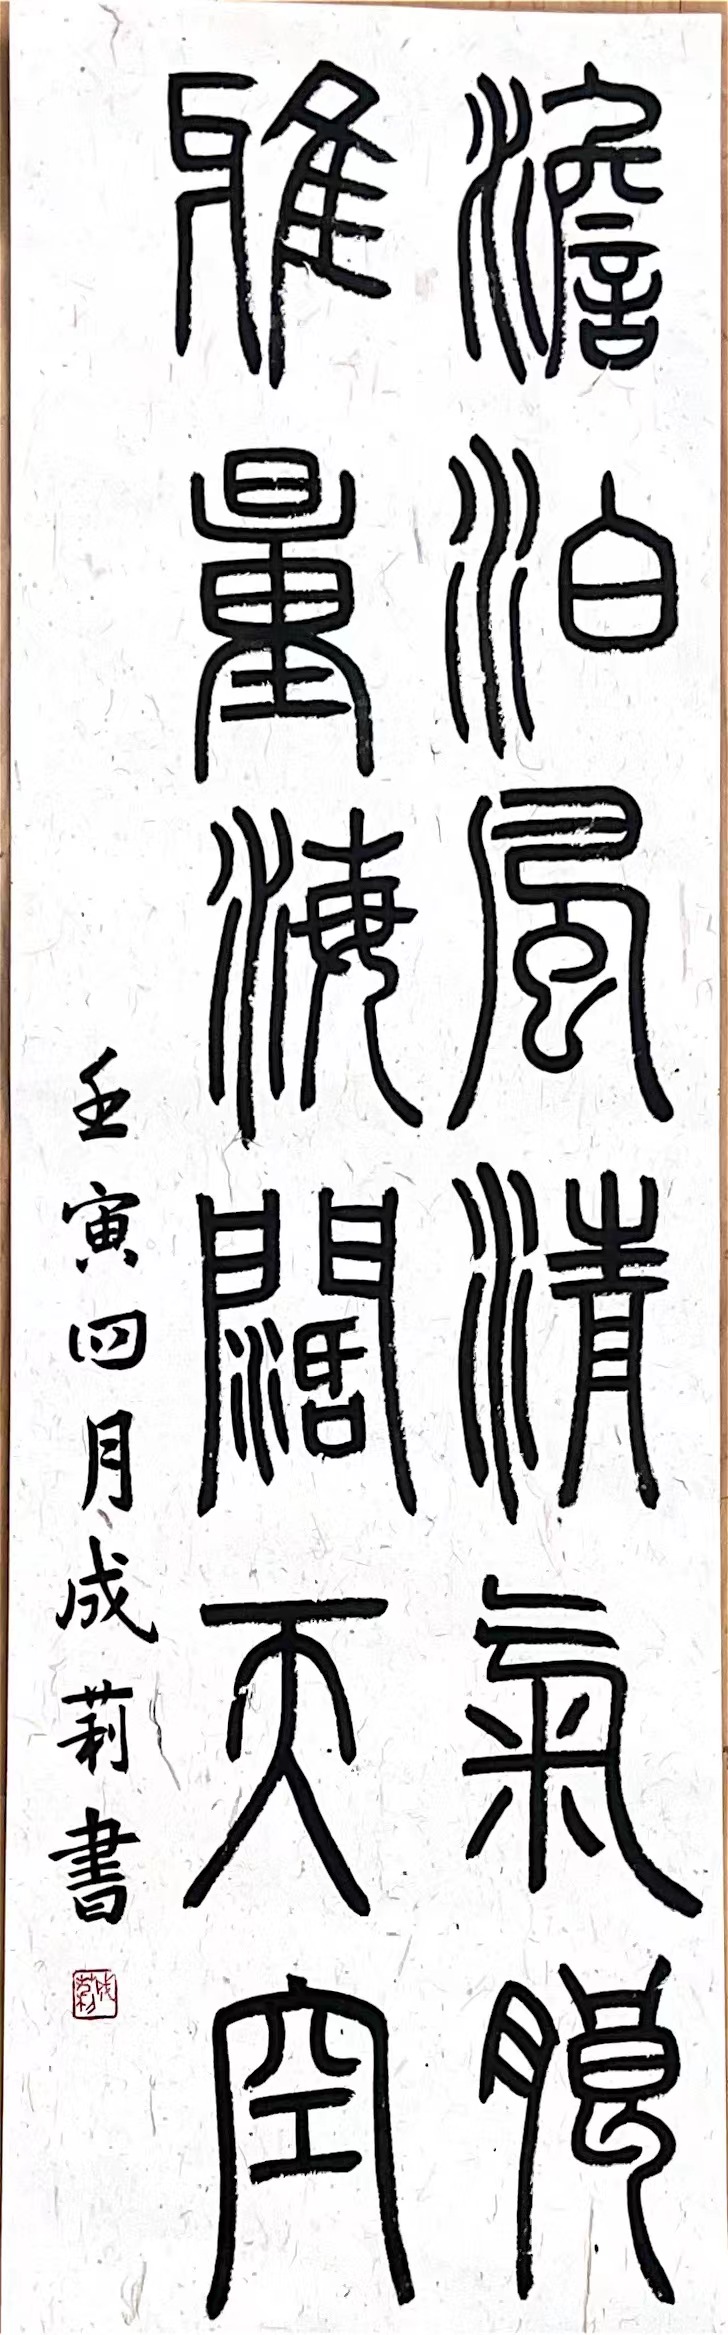 澹泊風清氣朖
雅量海闊天空
壬寅四月成莉書
成莉